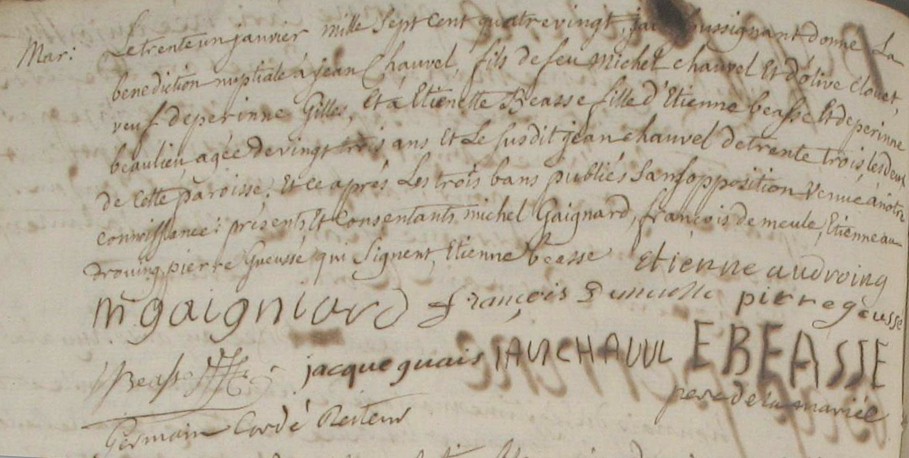 Mar: Le trente un janvier mille sept cent quatre vingt, jai soussignant donné La
benediction nuptiale à jean Chauvel, fils de feu michel chauvel Et d'olive Clouet,
veuf de perinne Gilles, Et à Etienette Beasse fille d'Etienne beasse Et de perinne
beaulieu, agée de vingt trois ans Et Le susdit jean chauvel de trente trois, les deux
de Cette paroisse, Et ce aprés Les trois bans publiés sans opposition venuë à notre
connoissance: présents Et consentants michel Gaignard, françois de meule, Etienne au
Drouing pierre Gueussé qui Signent, Etienne beasse etienne audroing
m gaigniard françois pierre geusse
Beasse jacque guais JAN CHAUUL EBEASSE
pere de la mariée
Germain Cordé Recteur